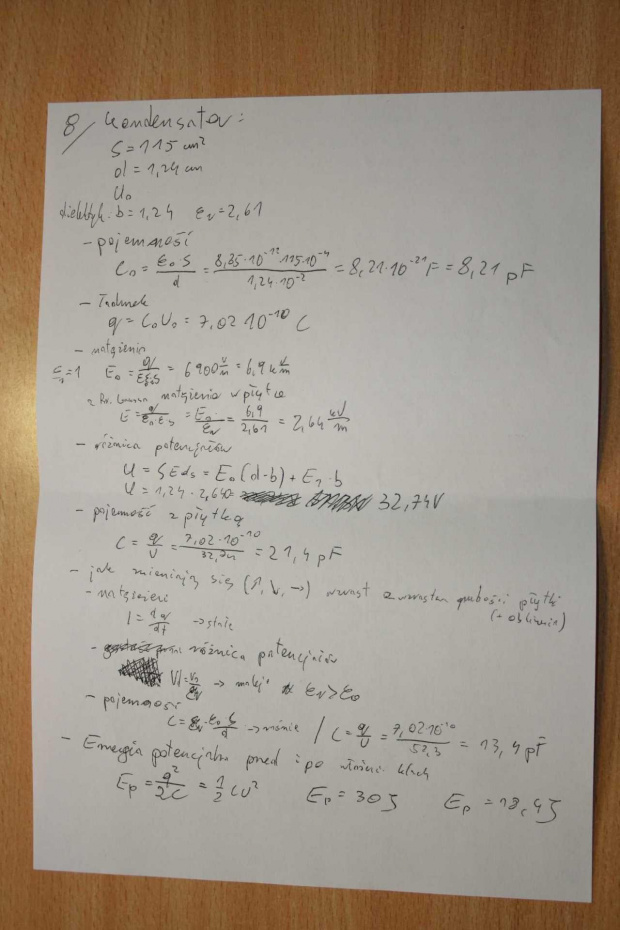 8/ Kondensator:
S = 115 cm²
d = 1,24 cm
U₀
dielektryk: b = 1,24 εᵣ = 2,61
- pojemność
C₀ = ε₀·S/d = 8,85·10⁻¹²·115·10⁻⁴/1,24·10⁻² = 8,21·10⁻²¹ F = 8,21 pF
- Ładunek
q = C₀U₀ = 7,02 10⁻¹⁰ C
- natężenia
εᵣ = 1 E₀ = = 6900 V/m = 6,9 kV/m
natężenia w płytce
E = = E₀/εᵣ = 6,9/2,61 = 2,64 kV/m
- różnica potencjałów
U = ∫Eds = E₀(d-b) + E₁·b
U = 1,24 · 2,640 = 32,74V
- pojemność z płytką
C = q/U = 7,02·10⁻¹⁰/32,74 = 21,4 pF
- jak zmieniają się (↑, ↓, →) wzrost grubości płytki
- natężenie (+ obliczenia)
I = dq/dt → stałe
- różnica potencjałów
→ maleje εᵣ > ε₀
- pojemność
C = εᵣ·ε₀ S/d → rośnie / C = q/U = 7,02·10⁻¹⁰/52,3 = 13,4 pF
- Energia potencjalna przed i po
Eₚ = q²/2C = 1/2 CU² Eₚ = 30J Eₚ = 18,4J